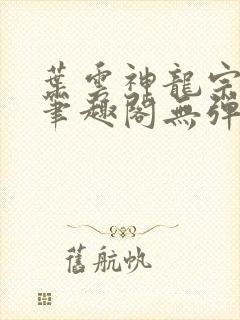 葉雲神龍宗
筆趣閣無彈
舊航帆